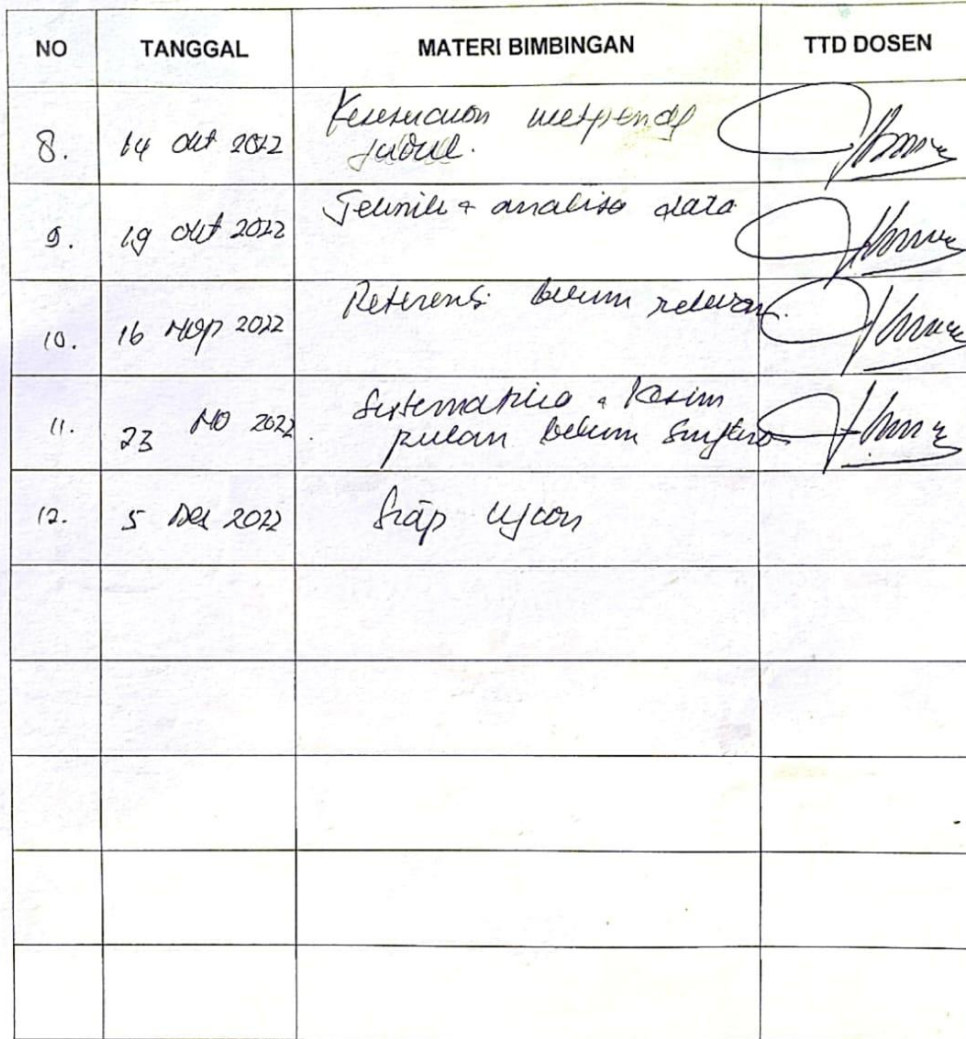 NO TANGGAL MATERI BIMBINGAN TTD DOSEN
8. 14 okt 2022 Kesesuaian metpen dg
judul.
9. 19 okt 2022 Teknik + analisa data
10. 16 Nop 2022 Referensi belum relevan.
11. 23 NO 2022 Sistematika + Kesim
pulan belum
12. 5 Des 2022 Siap Ujian